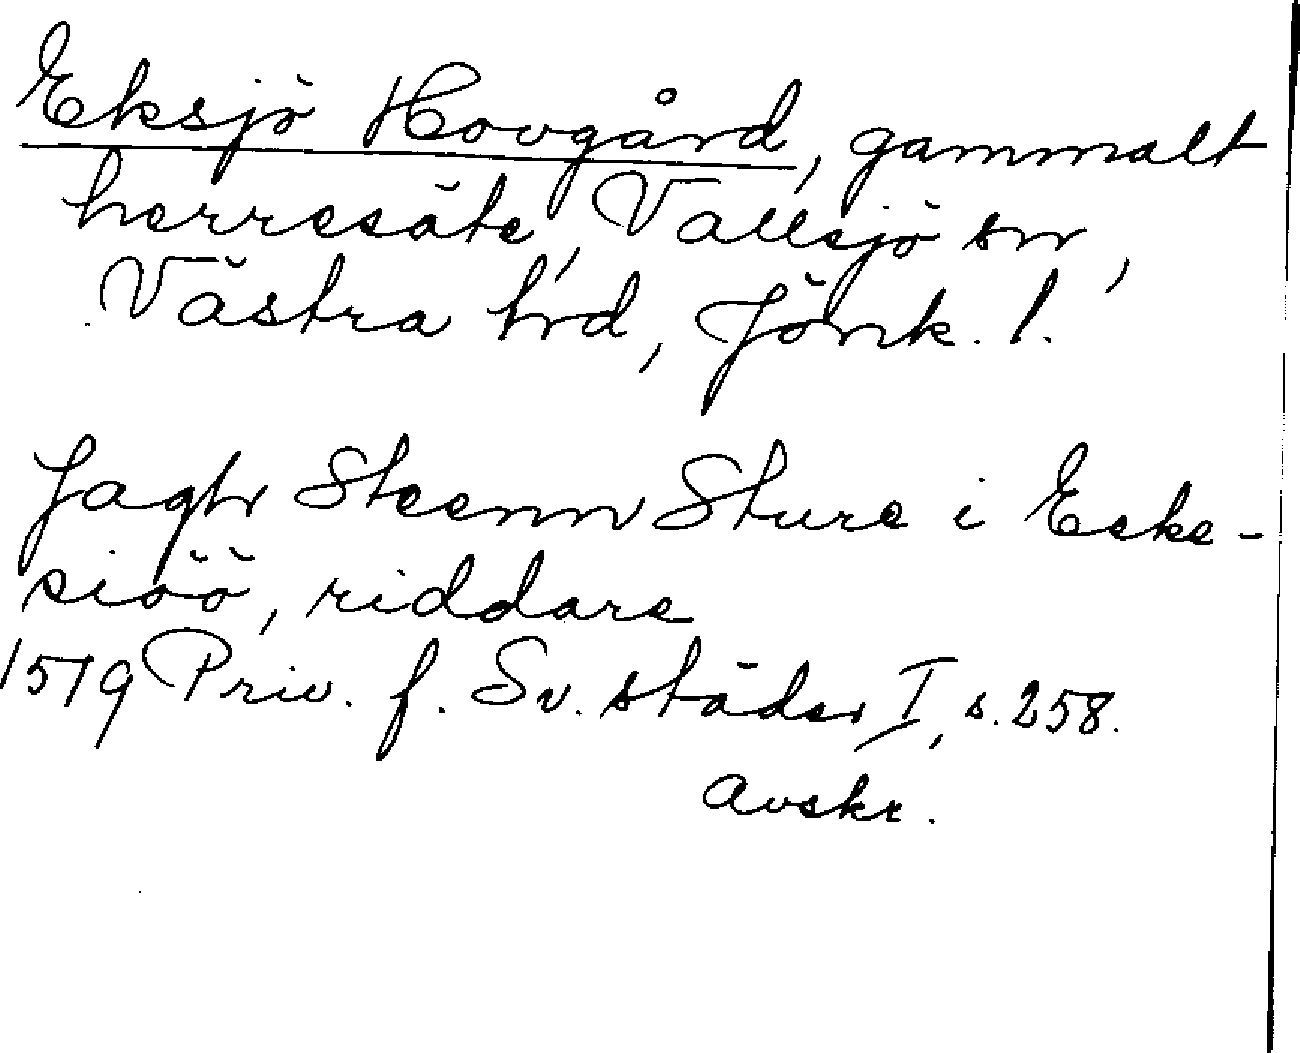 Eksjö Hovgård, gammalt
herresäte, Vallsjö sn,
Västra hd, Jönk. l.
Jagh Steenn Sture i Eske-
siöö, riddare
1519 Priv. f. Sv. städer I, s. 258.
Avskr.